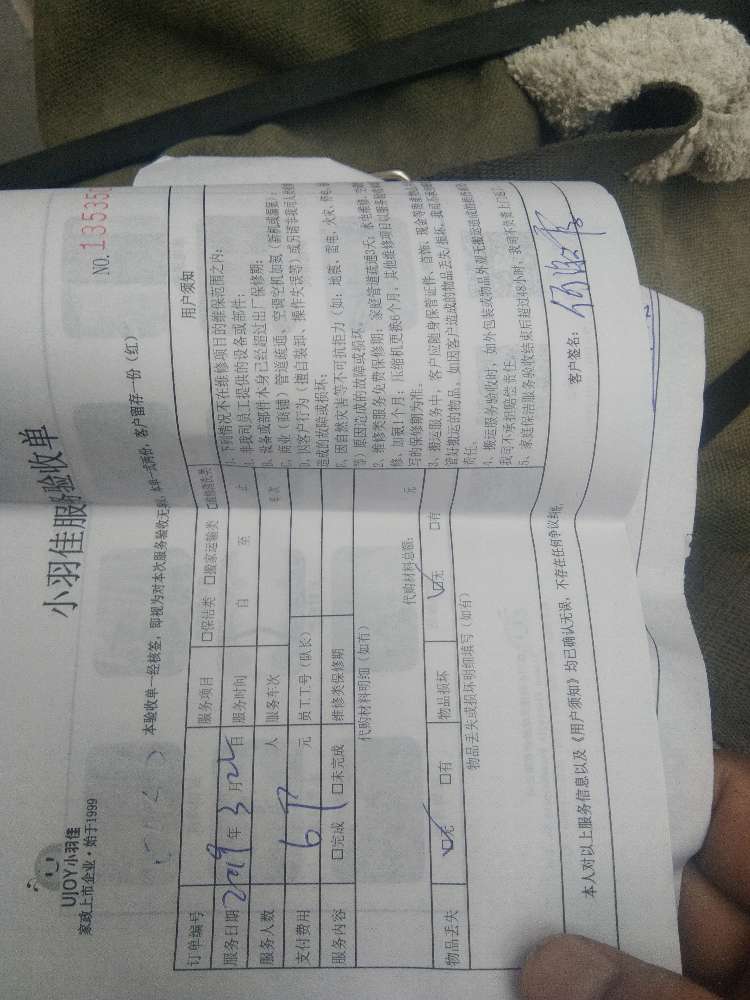 UJOY小羽佳
家政上市企业·始于1999
小羽佳服务验收单
NO. 135350
本验收单一经核签，即视为对本次服务验收无异 本单一式两份，客户留存一份（红）
订单编号 服务项目 □保洁类 □搬家运输类 用户须知
服务日期 2019 年 3 月 日 服务时间 自 至 止
服务人数 人 服务车次 车次
支付费用 元 员工工号（队长）
服务内容 □完成 □未完成 维修类保修期
代购材料明细（如有）
代购材料总额： 元
物品丢失 ☑无 □有 物品损坏 ☑无 □有
物品丢失或损坏明细填写（如有）
1、下列情况不在维修项目的维保范围之内：
A、非我司员工提供的设备或部件；
B、设备或部件本身已经超过出厂保修期；
C、商业（店铺）管道疏通、空调空机加氨（新机或漏氨）；
D、因客户行为（擅自装卸、操作失误等）或另请非我司人员
造成的故障或损坏；
E、因自然灾害等不可抗拒力（如：地震、雷电、火灾、
等）原因造成的故障或损坏。
2、维修类服务免费保修期：家庭管道疏通3天，水电维修、
修、加氨1个月，压缩机更换6个月，其他维修项目以服务
写的保修期为准。
3、搬运服务中，客户应随身保管证件、首饰、现金等贵重
管好搬运的物品，如因客户造成的物品丢失、损坏，我司不承担
责任。
4、搬运服务验收时，如外包装或物品外观无搬运造成的
我司不承担赔偿责任。
5、家庭保洁服务验收结束后超过48小时，我司不负责上门
本人对以上服务信息以及《用户须知》均已确认无误，不存在任何争议 客户签名：